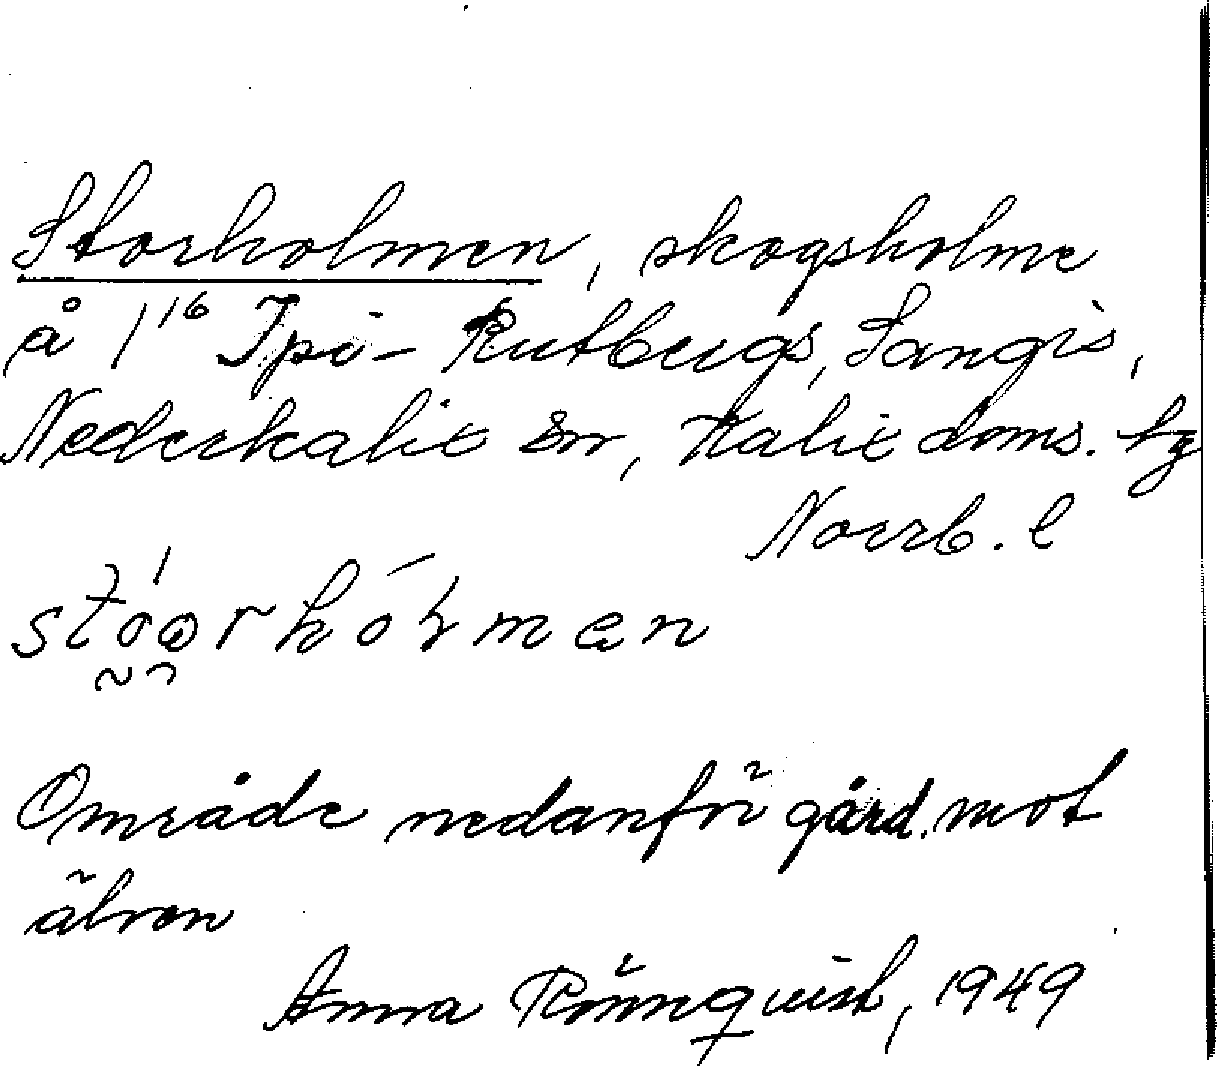 Storholmen, skogsholme
å 1¹⁶ Ipi-Rutbergs, Sangis,
Nederkalix sn, Kalix doms. tg
Norrb. l
Område nedanför gård. mot
älven
Anna Rönnquist, 1949